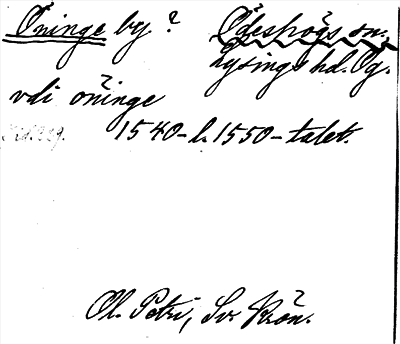 Öninge by? Ödeshögs sn.,
Lysings hd. Ög.
vdi öninge
1540- l. 1550-talet.
Ol. Petri, Sv. Krön.